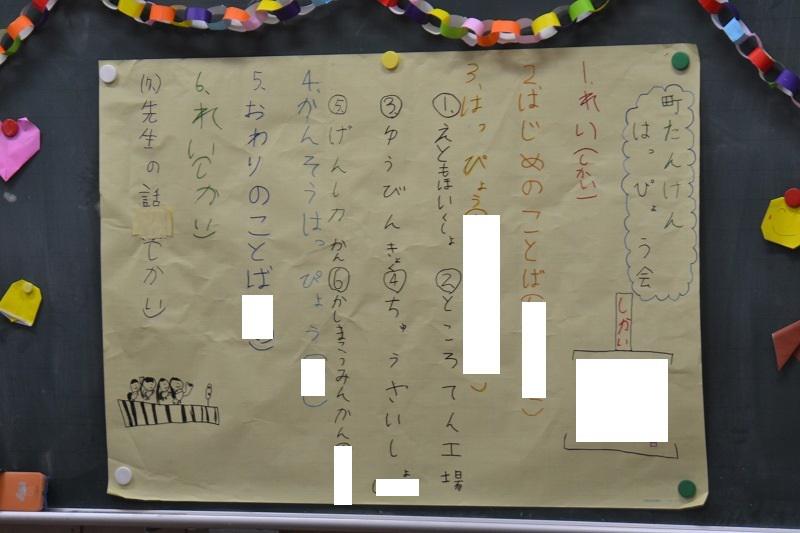 町たんけん
はっぴょう会
しかい
1.れい(しかい)
2.はじめのことば
3.はっぴょう
①えともほいくしょ ②ところてん工場
③ゆうびんきょく ④ちゅうざいしょ
⑤げんし力かん ⑥かしまこうみんかん
4.かんそうはっぴょう
5.おわりのことば
6.れい(しかい)
(7.)先生の話 しかい)